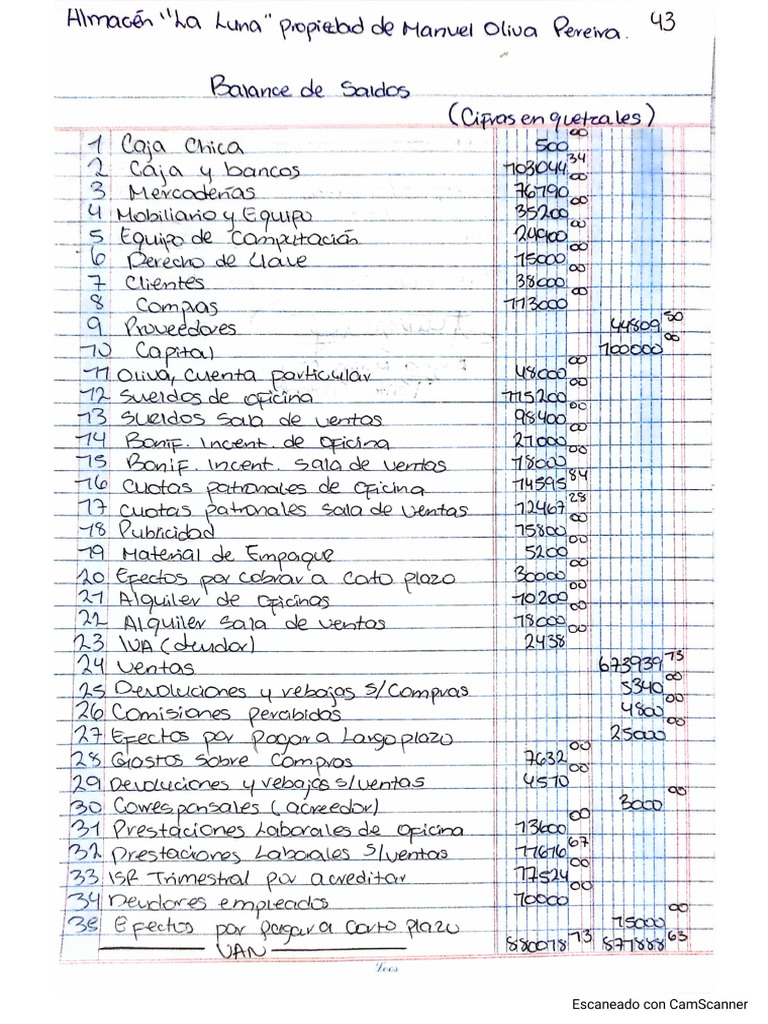 Almacén "La Luna" propiedad de Manuel Oliva Pereira. 43
Balance de Saldos
(Cifras en quetzales)
1 Caja Chica 500.00
2 Caja y bancos 103044.34
3 Mercaderías 76790.00
4 Mobiliario y Equipo 35200.00
5 Equipo de Computación 24900.00
6 Derecho de Llave 15000.00
7 Clientes 38000.00
8 Compras 113000.00
9 Proveedores 44809.50
10 Capital 100000.00
11 Oliva, cuenta particular 48000.00
12 Sueldos de oficina 115200.00
13 Sueldos Sala de ventas 98400.00
14 Bonif. Incent. de Oficina 21000.00
15 Bonif. Incent. sala de ventas 18000.00
16 Cuotas patronales de Oficina 14595.84
17 Cuotas patronales sala de ventas 12467.28
18 Publicidad 15800.00
19 Material de Empaque 5200.00
20 Efectos por cobrar a corto plazo 30000.00
21 Alquiler de oficinas 10200.00
22 Alquiler sala de ventas 18000.00
23 IVA (deudor) 2438.00
24 Ventas 673939.13
25 Devoluciones y rebajas s/Compras 5340.00
26 Comisiones percibidas 4800.00
27 Efectos por pagar a Largo plazo 25000.00
28 Gastos sobre Compras 7632.00
29 Devoluciones y rebajas s/ventas 4570.00
30 Corresponsales (acreedor) 3000.00
31 Prestaciones Laborales de oficina 13600.00
32 Prestaciones Laborales s/ventas 11616.67
33 ISR Trimestral por acreditar 17524.00
34 Deudores empleados 10000.00
35 Efectos por pagar a Corto plazo 15000.00
VAN 880078.13 871888.63
Loos
Escaneado con CamScanner